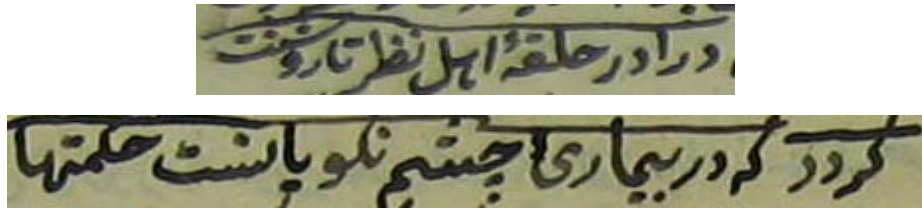 درآ در حلقهٔ اهل نظر تا روشنت
گردد که در بیماری چشم نکویانست حکمتها